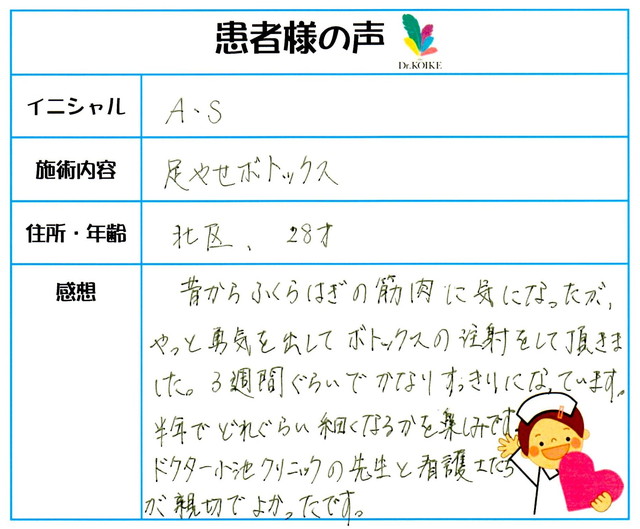 患者様の声
Dr.KOIKE
イニシャル
A・S
施術内容
足やせボトックス
住所・年齢
北区、 28才
感想
昔からふくらはぎの筋肉に気になったが、
やっと勇気を出してボトックスの注射をして頂きま
した。3週間ぐらいでかなりすっきりになっています。
半年でどれぐらい細くなるかを楽しみです。
ドクター小池クリニックの先生と看護士たち
が親切でよかったです。